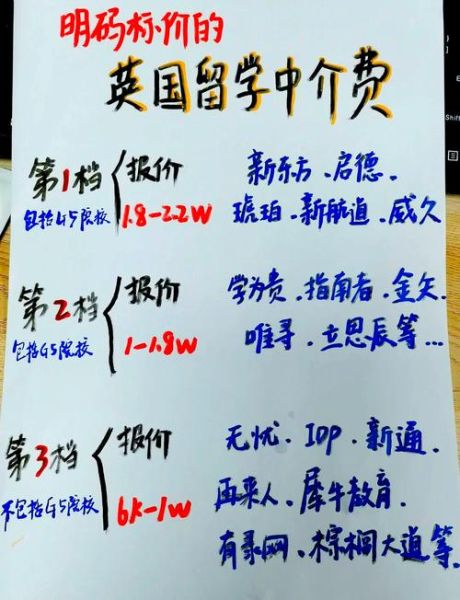 明码标价的
英国留学中介费
第1档
包括G5院校
报价
1.8-2.2W
新东方、启德、
琥珀、新航道、威久
第2档
包括G5院校
报价
1-1.8W
学为贵、指南者、金矢、
唯寻、立思辰等...
第3档
不包括G5院校
报价
6K-1W
无忧、IDP、新通、
再来人、犀牛教育、
有录网、棕榈大道等、
Shift